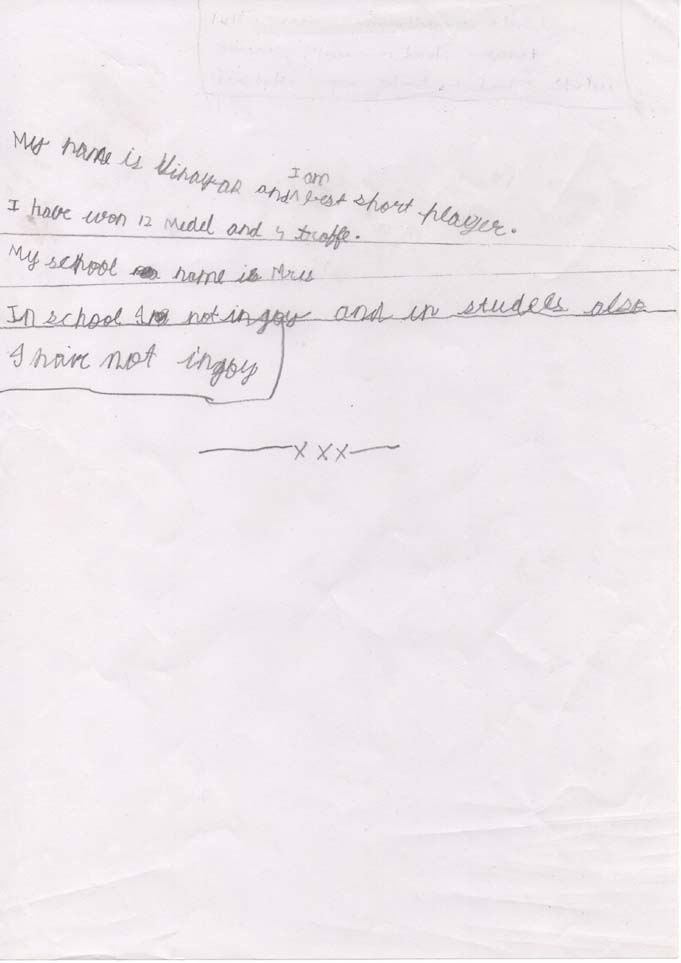 My name is Vinayak and I am best short player.
I have won 12 Medel and 4 traffe.
My school name is Mrus
In school I not in goy and in studels also
I have not ingoy
x x x